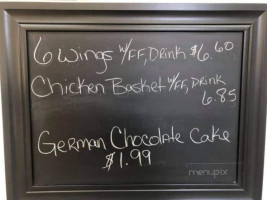 6 Wings W/FF, Drink $6.60
Chicken Basket W/FF, Drink
6.85
German Chocolate Cake
$1.99
menupix